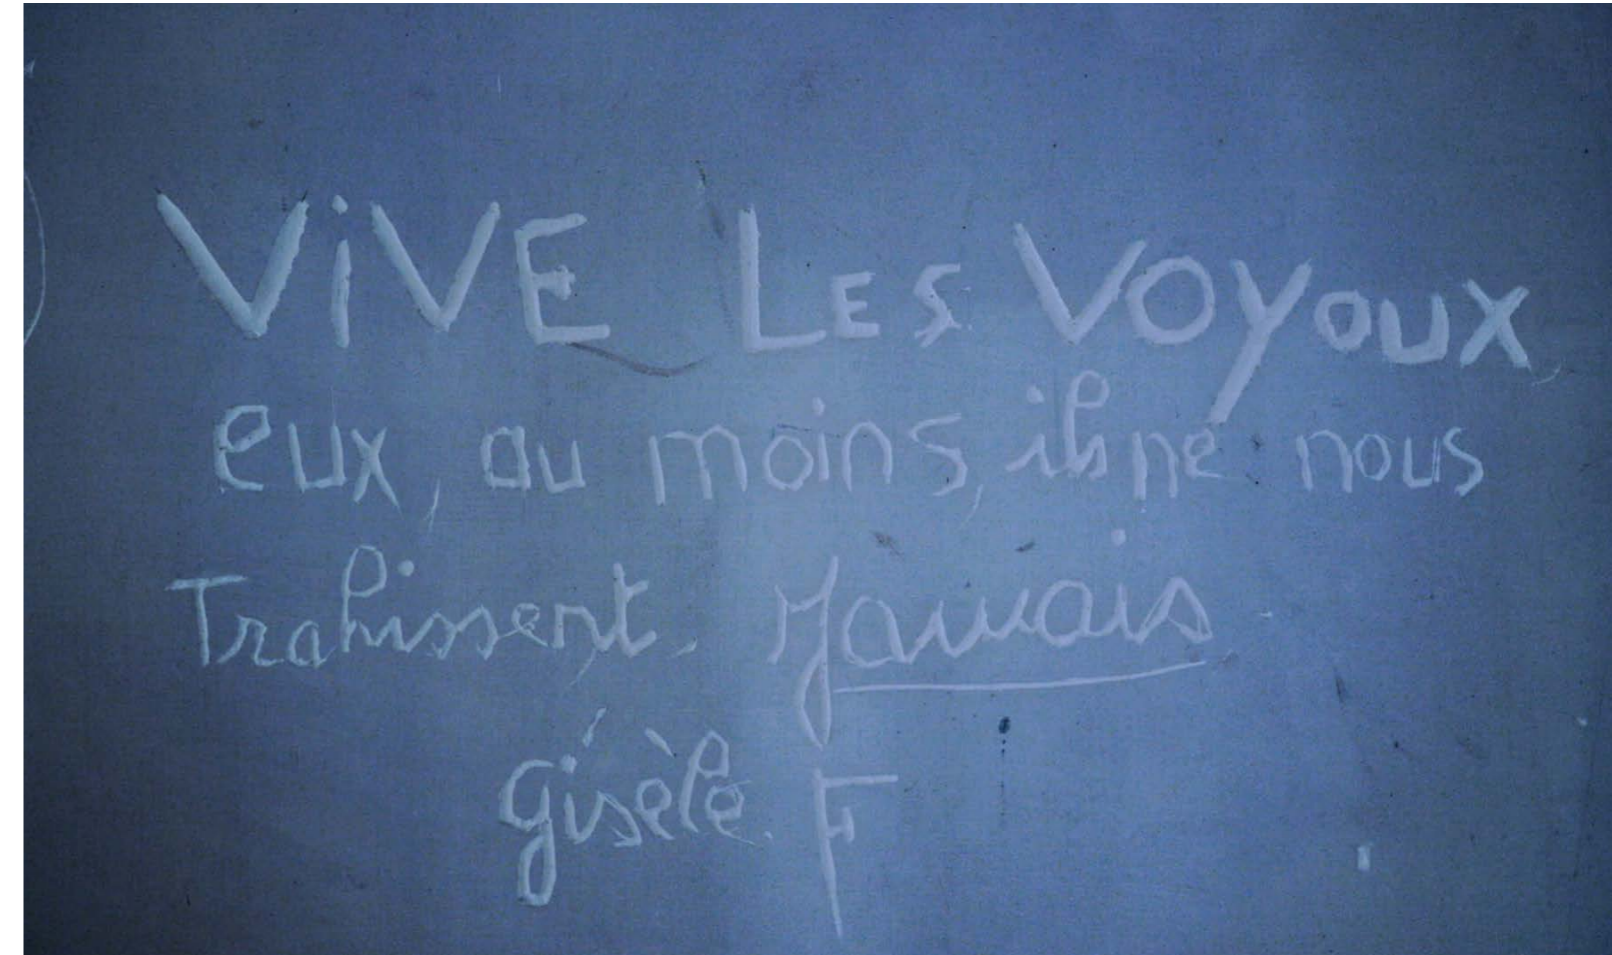 ViVE LES VOYOUX
eux, au moins, ils ne nous
Trahissent, Jamais
gisèle. F